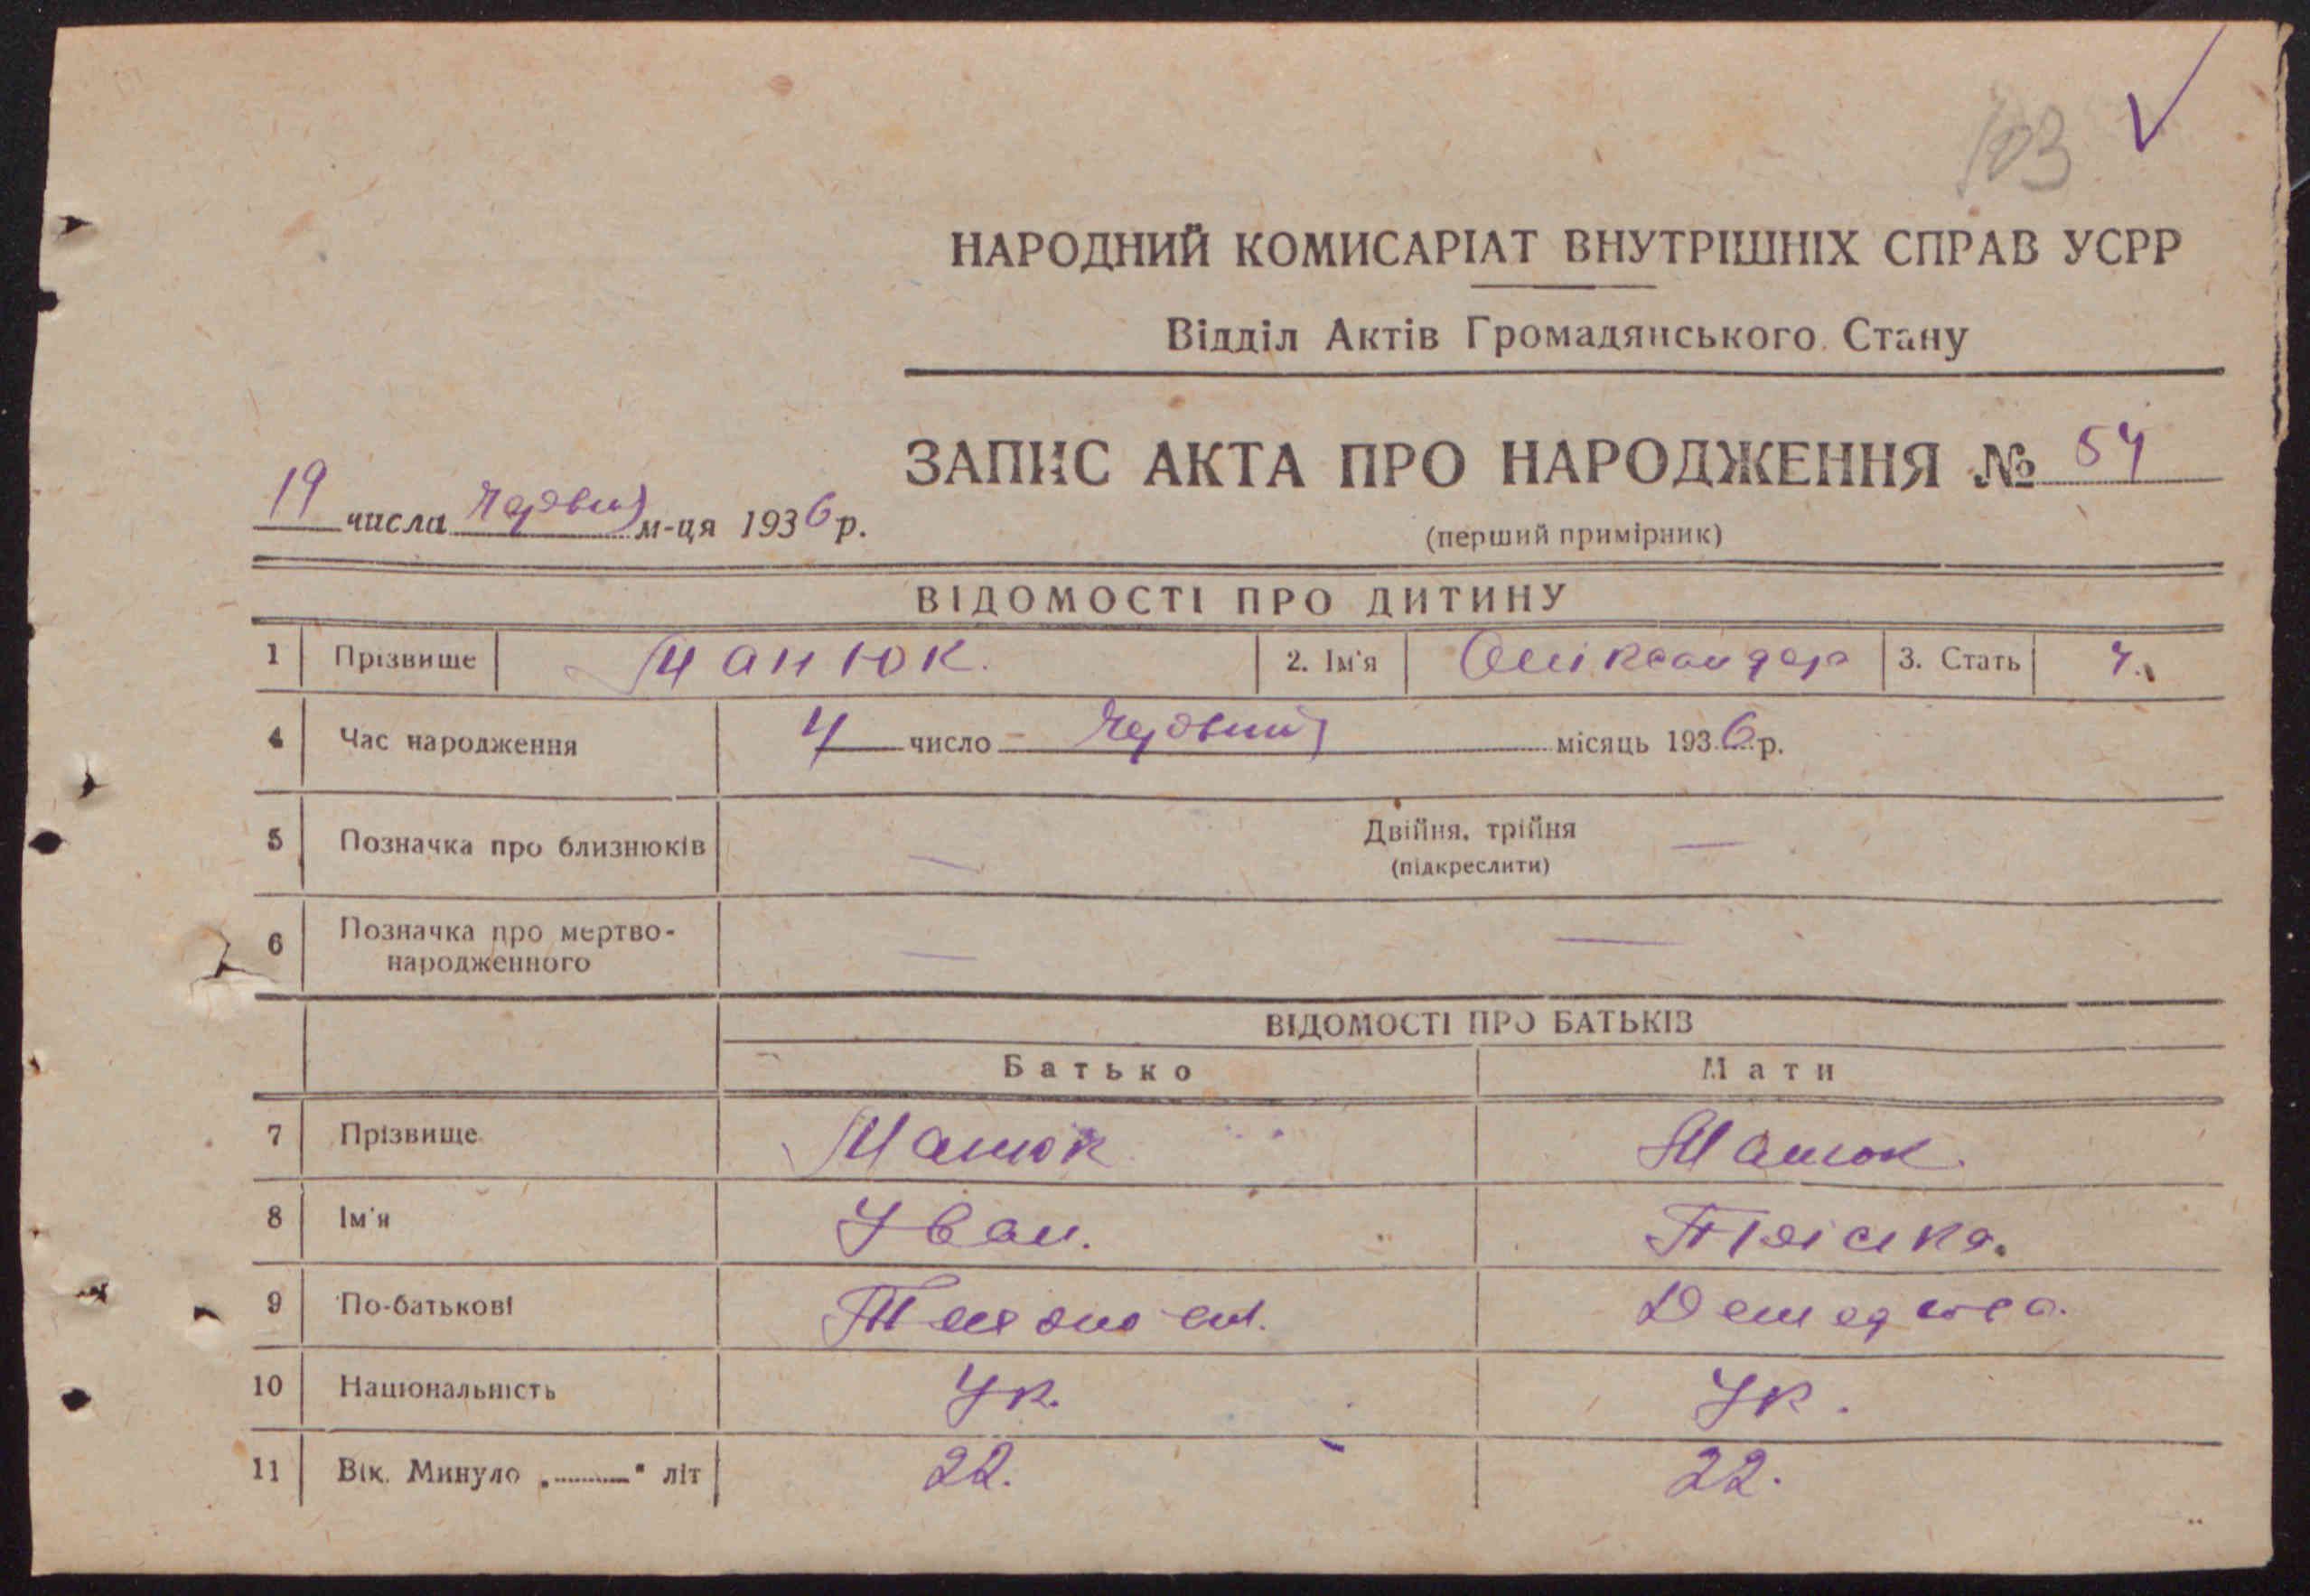 103
НАРОДНИЙ КОМИСАРІАТ ВНУТРІШНІХ СПРАВ УСРР
Відділ Актів Громадянського Стану
ЗАПИС АКТА ПРО НАРОДЖЕННЯ № 54
19 числа Червня м-ця 1936 р.
(перший примірник)
ВІДОМОСТІ ПРО ДИТИНУ
1 Прізвище Манюк. 2. Ім'я Олександер 3. Стать ч.
4 Час народження 4 число Червня місяць 1936 р.
5 Позначка про близнюків — Двійня, трійня —
(підкреслити)
6 Позначка про мертво- — —
народженного
ВІДОМОСТІ ПРО БАТЬКІВ
Батько Мати
7 Прізвище Манюк Манюк.
8 Ім'я Іван.
9 По-батькові
10 Національність Ук. Ук.
11 Вік. Минуло „ “ літ 22. 22.